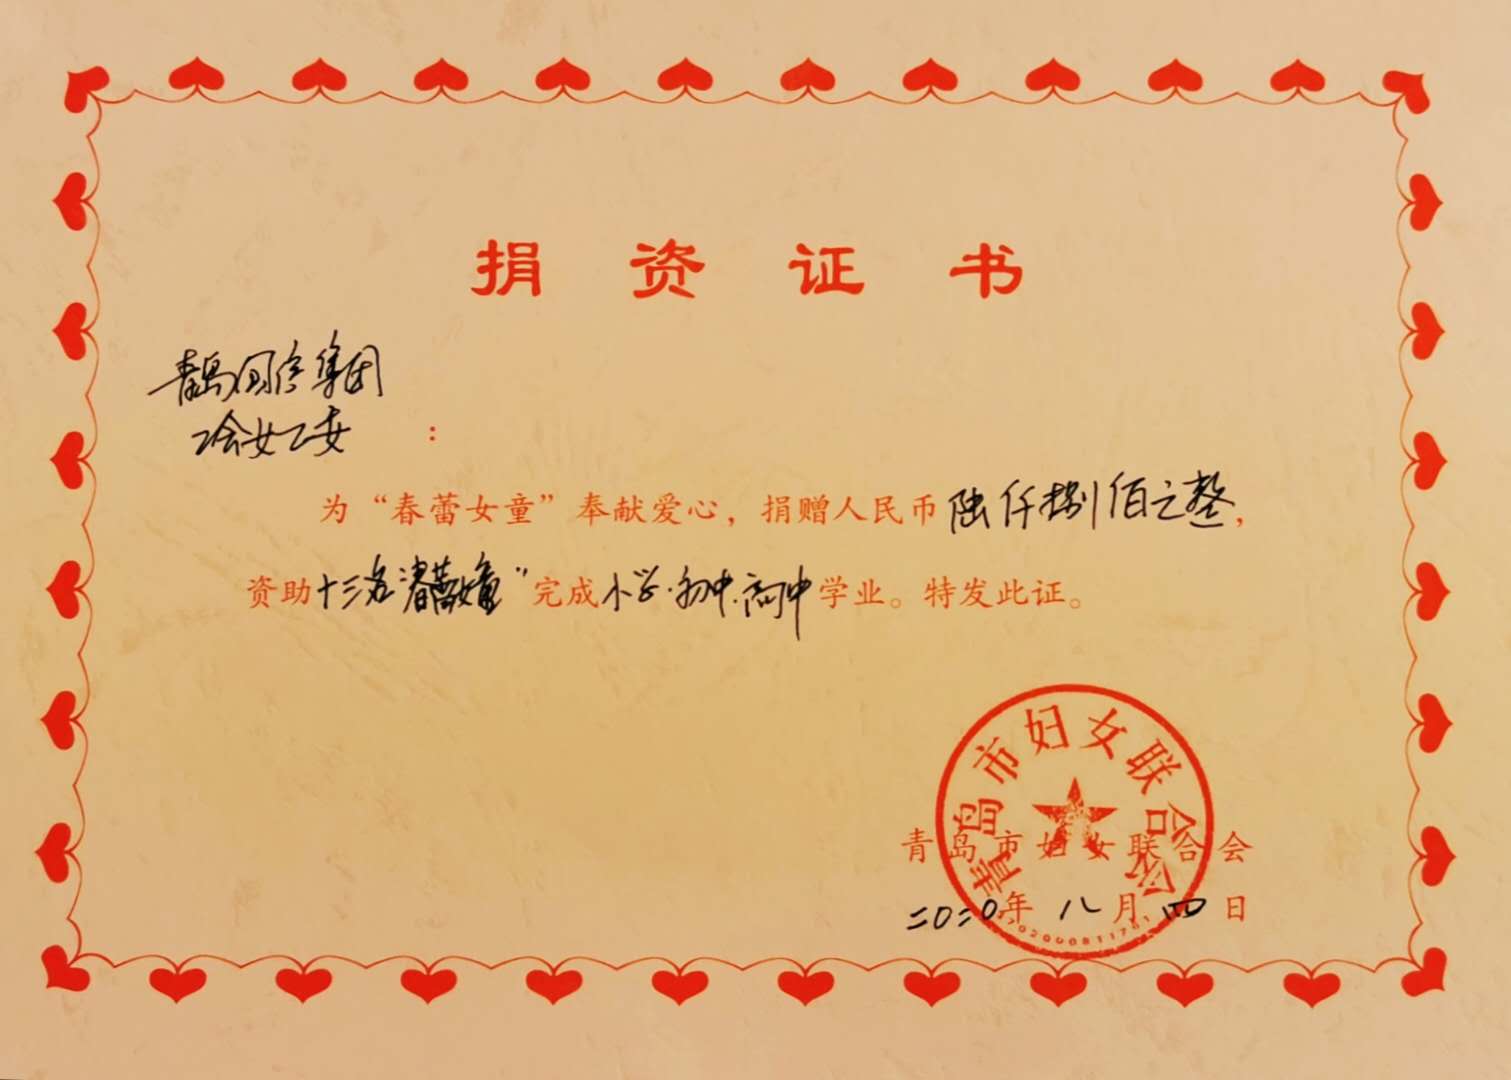 捐资证书
青岛国信集团
工会女工委：
为“春蕾女童”奉献爱心，捐赠人民币陆仟捌佰元整，
资助十三名“春蕾女童”完成小学.初中.高中学业。特发此证。
青岛市妇女联合会
青岛市妇女联合会
二〇二〇年八月四日